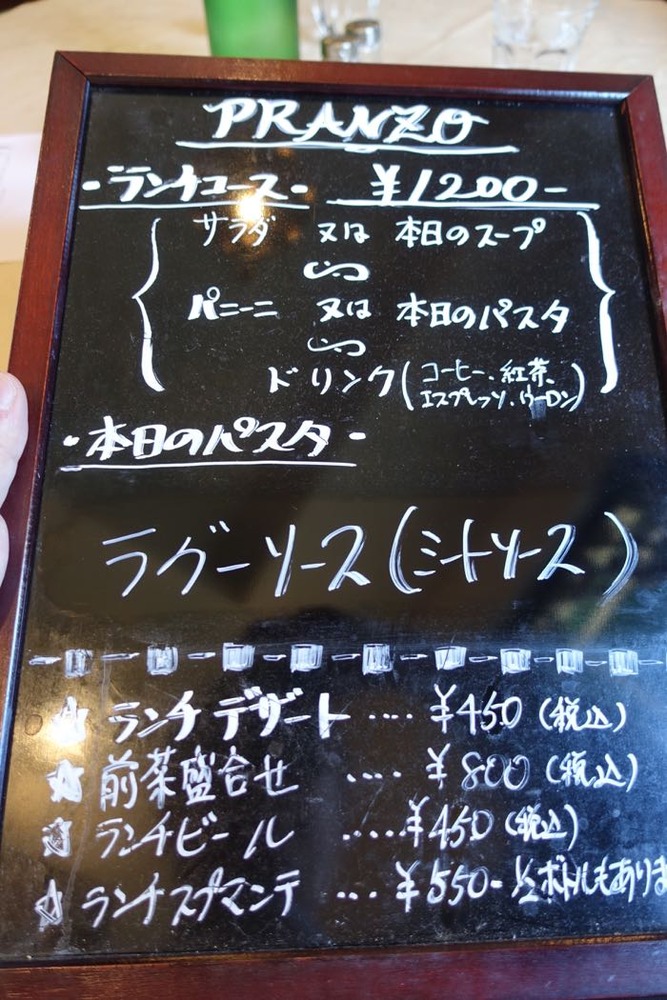 PRANZO
・ランチコース・ ¥1200-
サラダ 又は 本日のスープ
パニーニ 又は 本日のパスタ
ドリンク(コーヒー、紅茶、
エスプレッソ、ウーロン)
・本日のパスタ・
ラグーソース(ミートソース)
☆ ランチデザート .... ¥450(税込)
☆ 前菜盛合せ .... ¥800(税込)
☆ ランチビール .....¥450(税込)
☆ ランチスプマンテ ... ¥550-½ボトルもありま